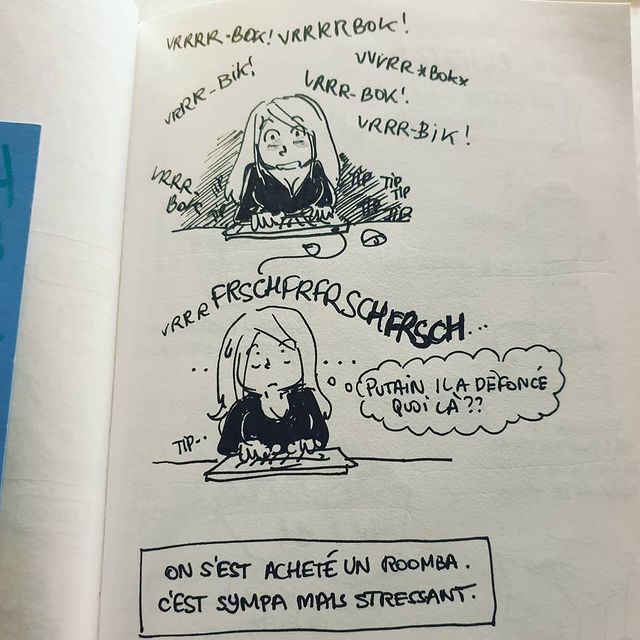 VRRRR-BOK! VRRRRBOK!
VRRR-BIK!
VVVRR *BOK*
VRRR-BOK!
VRRR-BIK!
VRRR-
BOK
TIP TIP
TIP TIP
TIP
TIP TIP
VRRR FRSCHFRFRSCHFRSCH...
... ...
PUTAIN IL A DÉFONCÉ
QUOI LÀ ??
TIP..
ON S'EST ACHETÉ UN ROOMBA.
C'EST SYMPA MAIS STRESSANT.